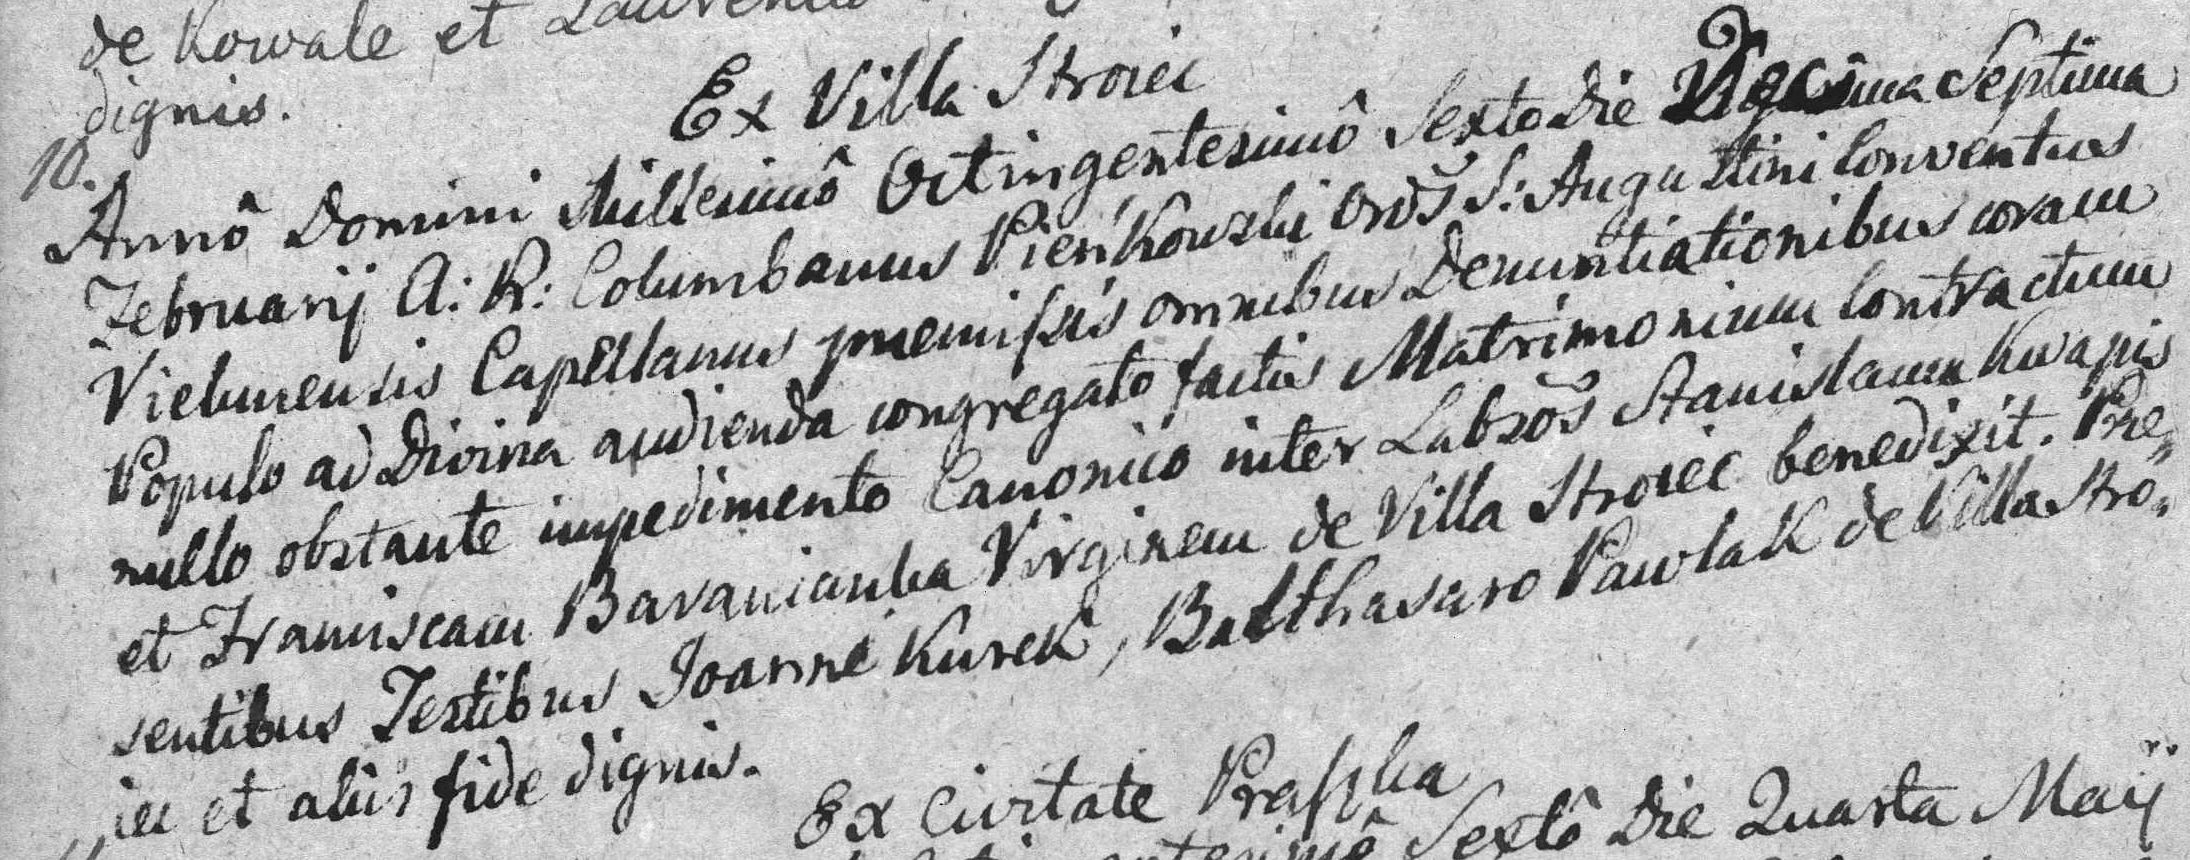 de Kowale et Laurentio
dignis.
Ex Villa Stroiec
10.
Annô Domini Millesimô Octingentesimô Sexto Die Vigesima Septima
Februarij A: R: Columbanus Pieńkowski Ords S: Augustini Conventus
Vielunensis Capellanus praemissis omnibus Denuntiationibus coram
Populo ad Divina audienda congregato factis Matrimonium Contractum
nullo obstante impedimento Canonico inter Labsos Stanislaum Kwapis
et Franciscam Baranianka Virginem de Villa Stroiec benedixit. Prae„
sentibus Testibus Joanne Kurek, Balthasaro Pawlak de Villa Stro„
„iec et aliis fide dignis.
Ex Civitate Praszka
Sextô Die Quarta Maij